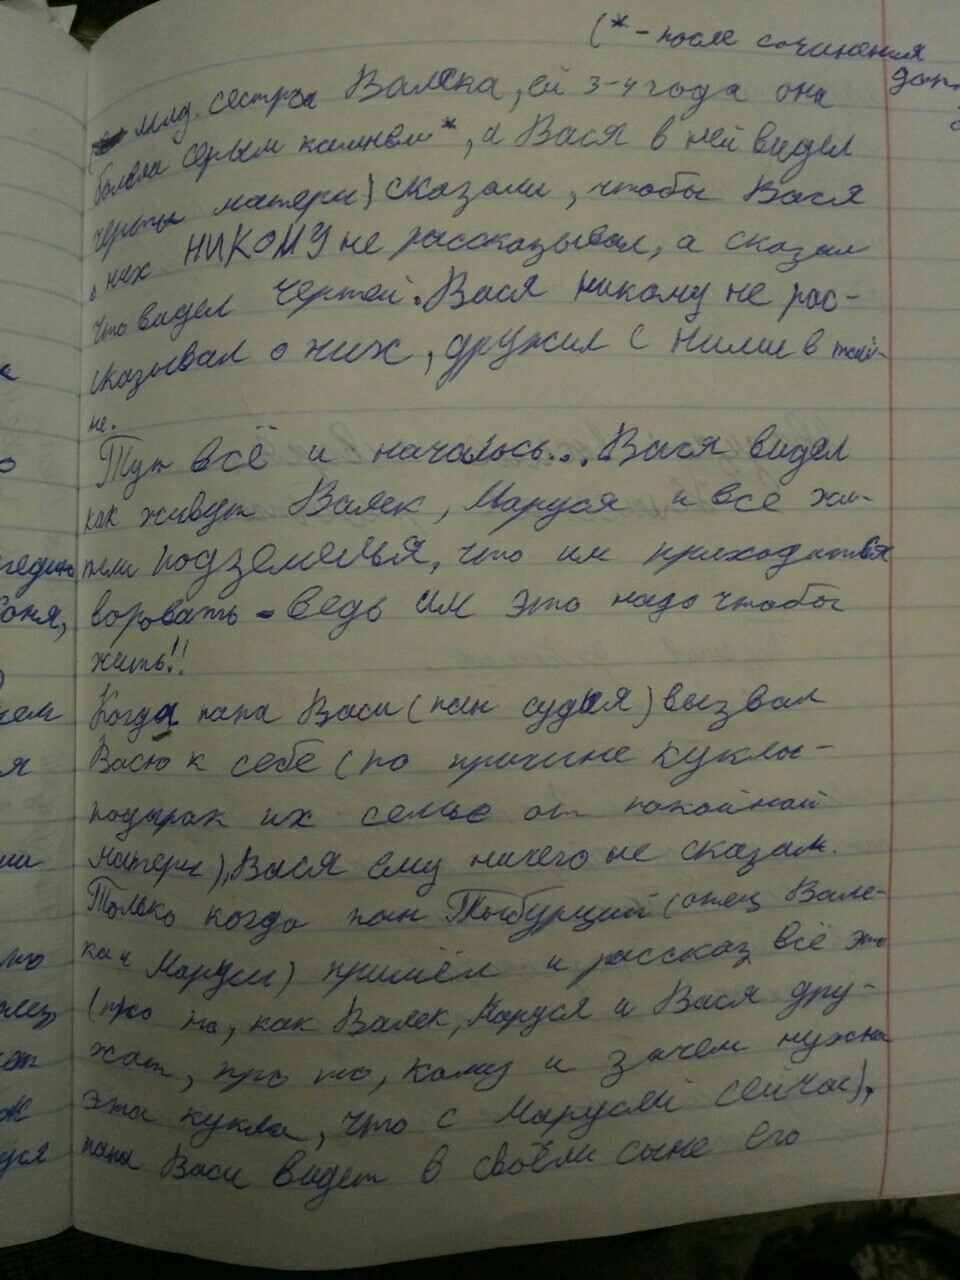 (* - после сочинения
доп
млд. сестра Валека, ей 3-4 года она
болела серым камнем*, а Вася в ней видел
черты матери) сказали, чтобы Вася
о них НИКОМУ не рассказывал, а сказал
что видел чертей. Вася никому не рас-
сказывал о них, дружил с ними в тай-
не.
Тут всё и началось... Вася видел
как живут Валек, Маруся и все жи-
тели подземелья, что им приходиться
воровать - ведь им это надо чтобы
жить!!
Когда папа Васи (пан судья) вызвал
Васю к себе (по причине куклы-
подарак их семье от покойной
матери), Вася ему ничего не сказал.
Только когда пан Тыбурций (отец Вале-
ка и Маруси) пришёл и рассказ всё это
(про то, как Валек, Маруся и Вася дру-
жат, про то, кому и зачем нужна
эта кукла, что с Марусей сейчас),
папа Васи видет в своём сыне его